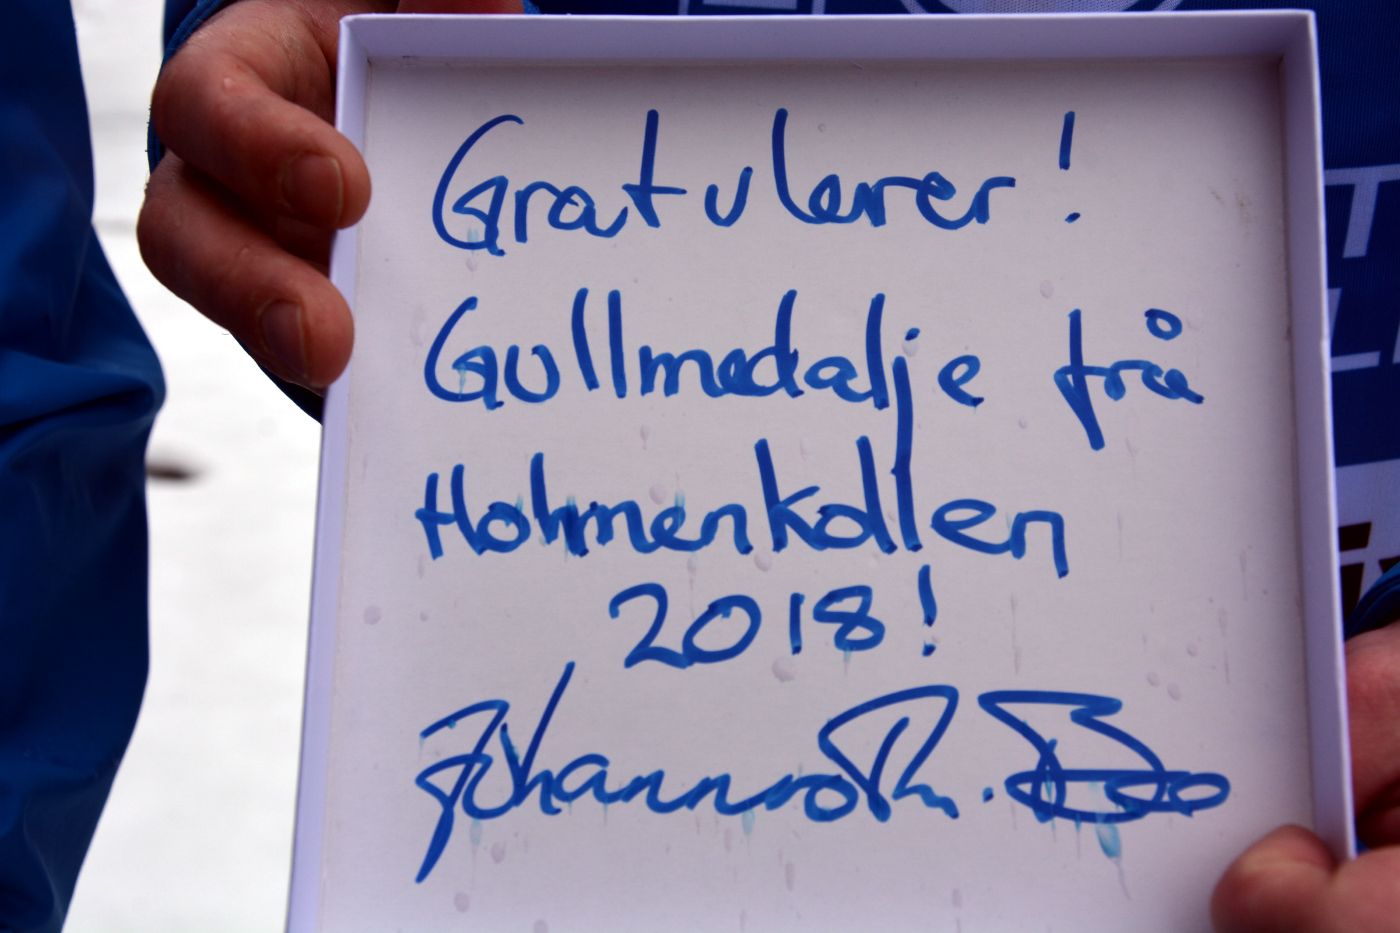 Gratulerer!
Gullmedalje frå
Holmenkollen
2018!
Johannes Th. Bø